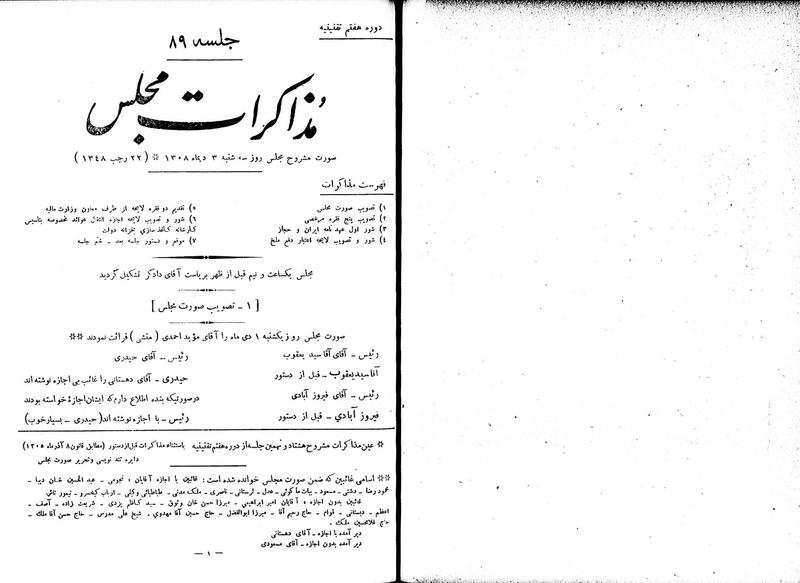 دوره هفتم تقنینیه
جلسه ۸۹
مذاکرات مجلس
صورت مشروح مجلس روز سه شنبه ۳ دیماه ۱۳۰۸ * (۲۲ رجب ۱۳۴۸)
فهرست مذاکرات
۱) تصویب صورت مجلس
۲) تصویب پنج فقره مرخصی
۳) شور اول عهدنامه ایران و حجاز
۴) شور و تصویب لایحه اعتبار دفع ملخ
۵) تقدیم دو فقره لایحه از طرف معاون وزارت مالیه
۶) شور و تصویب لایحه اجازه انتقال عوائد مخصوصه بتاسیس
کارخانه کاغذسازی بخزانه دولت
۷) موقع و دستور جلسه بعد - ختم جلسه
مجلس یکساعت و نیم قبل از ظهر بریاست آقای دادگر تشکیل گردید
[ ۱ - تصویب صورت مجلس ]
صورت مجلس روز یکشنبه ۱ دی ماه را آقای مؤید احمدی (منشی) قرائت نمودند **
رئیس - آقای آقا سید یعقوب
آقا سید یعقوب - قبل از دستور
رئیس - آقای فیروز آبادی
فیروز آبادی - قبل از دستور
رئیس - آقای حیدری
حیدری - آقای دهستانی را غائب بی اجازه نوشته اند
درصورتیکه بنده اطلاع دارم که ایشان اجازه خواسته بودند
رئیس - با اجازه نوشته اند (حیدری - بسیار خوب)
* عین مذاکرات مشروح هشتاد و نهمین جلسه از دوره هفتم تقنینیه باستثناء مذاکرات قبل از دستور (مطابق قانون ۸ آذر ماه ۱۳۰۵)
دایره تند نویسی و تحریر صورت مجلس
** اسامی غائبین که ضمن صورت مجلس خوانده شده است: غائبین با اجازه آقایان، نجومی - عبد الحسین خان دیبا -
محمود رضا - دشتی - مسعود - بیات ماکوئی - عدل - لرستانی - ناصری - ملک مدنی - طباطبائی وکیلی - ارباب کیخسرو - تیمور تاش
غائبین بدون اجازه، آقایان امیر ابراهیمی - میرزا حسن خان وثوق - سید کاظم یزدی - شریعت زاده - آصف -
اعظم - دبستانی - قوام - حاج رحیم آقا - میرزا ابوالفضل - حاج حسین آقا مهدوی - شیخ علی مدرس - حاج حسن آقا ملک -
حاج غلامحسین ملک.
دیر آمده با اجازه - آقای دهستانی
دیر آمده بدون اجازه - آقای مسعودی
- ۱ -